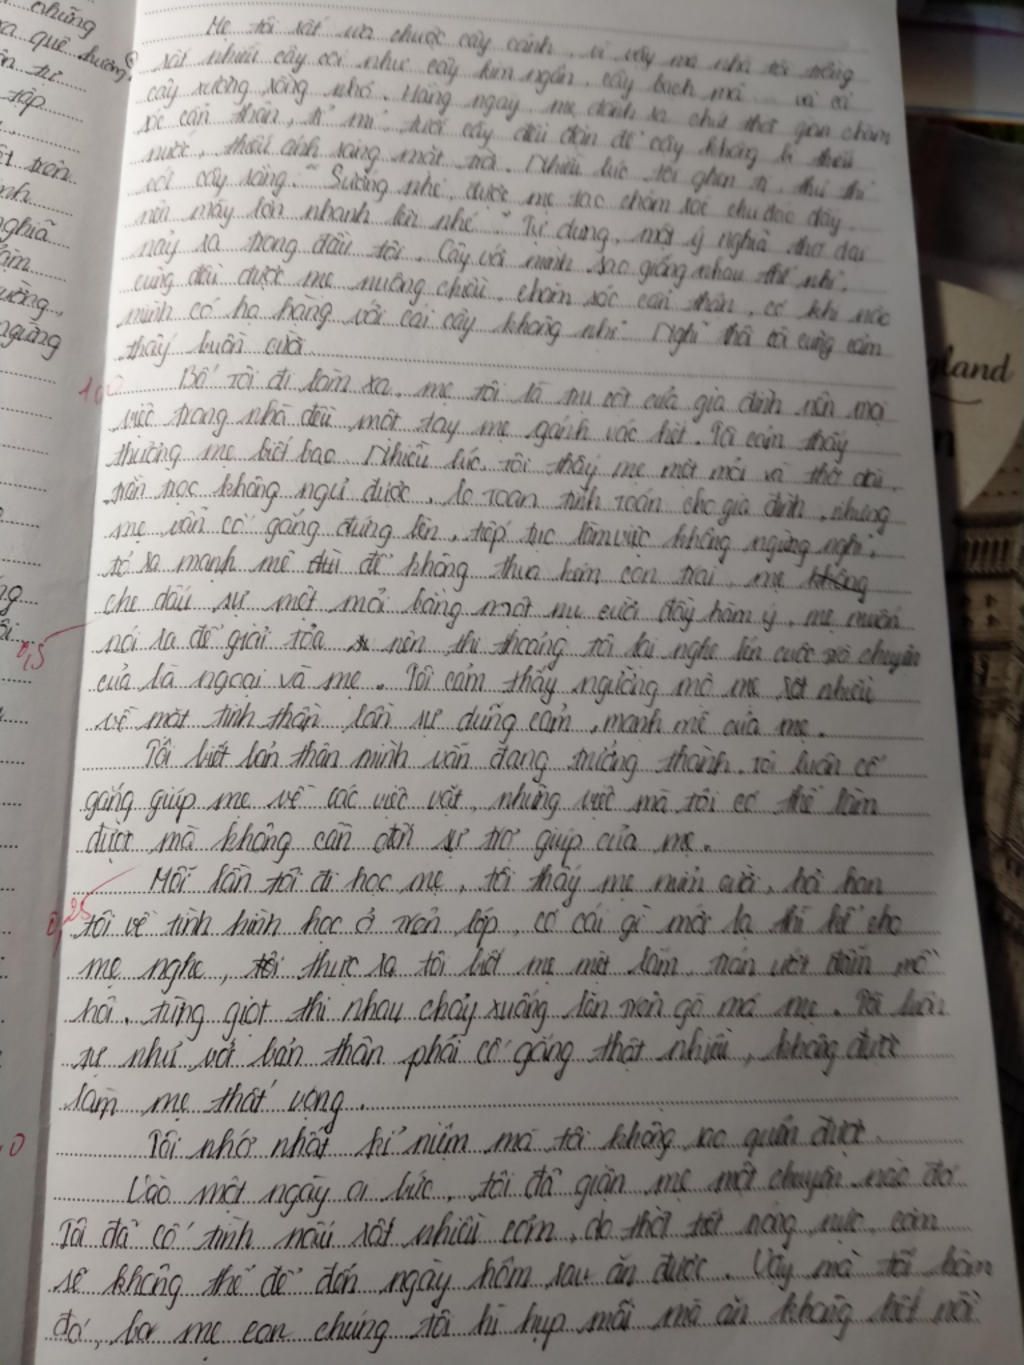 những
quê hương
tập
trên
nghĩa
ngừng
Mẹ tôi rất ưa chuộc cây cảnh, vì vậy mà nhà tôi trồng
rất nhiều cây cối như cây kim ngân, cây bạch mã ... và cả
cây xương rồng nhỏ. Hàng ngày mẹ dành ra chút thời gian chăm
sóc cẩn thận, tỉ mỉ tưới cây đều đặn để cây không bị thiếu
nước, thiếu ánh sáng mặt trời. Nhiều lúc tôi ghen tị, thủ thỉ
với cây rằng: "Sướng nhé, được mẹ tao chăm sóc chu đáo đấy
nên mày lớn nhanh lên nhé." Tự dưng, một ý nghĩ thơ dại
nảy ra trong đầu tôi. Cây với mình sao giống nhau thế nhỉ,
cũng đều được mẹ nuông chiều, chăm sóc cẩn thận, có khi nào
mình có họ hàng với cái cây không nhỉ. Nghĩ thôi tôi cũng cảm
thấy buồn cười.
Bố tôi đi làm xa, mẹ tôi là trụ cột của gia đình nên mọi
việc trong nhà đều một tay mẹ gánh vác hết. Tôi cảm thấy
thương mẹ biết bao. Nhiều lúc, tôi thấy mẹ mệt mỏi và thở dài,
trằn trọc không ngủ được, lo toan tính toán cho gia đình, nhưng
mẹ vẫn cố gắng đứng lên, tiếp tục làm việc không ngừng nghỉ,
tỏ ra mạnh mẽ để không thua kém con trai, mẹ không
che dấu sự mệt mỏi bằng một nụ cười đầy hàm ý, mẹ muốn
nói ra để giải tỏa nên thi thoảng tôi lại nghe lén cuộc trò chuyện
của bà ngoại và mẹ. Tôi cảm thấy ngưỡng mộ mẹ rất nhiều
về mặt tinh thần lẫn sự dũng cảm, mạnh mẽ của mẹ.
Tôi biết bản thân mình vẫn đang trưởng thành. Tôi luôn cố
gắng giúp mẹ về các việc vặt, những việc mà tôi có thể làm
được mà không cần đến sự trợ giúp của mẹ.
Mỗi lần tôi đi học mẹ, tôi thấy mẹ mỉm cười, hỏi han
tôi về tình hình học ở trên lớp, có cái gì mới lạ thì kể cho
mẹ nghe, tôi thực ra tôi biết mẹ mệt lắm, trán ướt đẫm mồ
hôi, từng giọt thi nhau chảy xuống lăn trên gò má mẹ. Tôi luôn
tự nhủ với bản thân phải cố gắng thật nhiều, không được
làm mẹ thất vọng.
Tôi nhớ nhất kỉ niệm mà tôi không sao quên được.
Vào một ngày oi bức, tôi đã giận mẹ một chuyện nào đó
Tôi đã cố tình nấu rất nhiều cơm, do thời tiết nóng nực, cơm
sẽ không thể để đến ngày hôm sau ăn được. Vậy mà tối hôm
đó, ba mẹ con chúng tôi hì hụp mãi mà ăn không hết nồi
0,5
0,25
gland